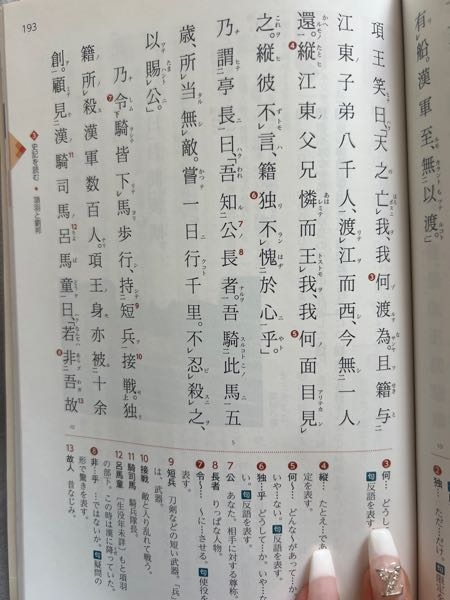 193
有船。漢軍至、無以渡。」
項王笑曰、「天之亡我、我何渡為。且籍与
江東子弟八千人、渡江而西、今無一人
還。縦江東父兄憐而王我、我何面目見
之。縦彼不言、籍独不愧於心乎。」
乃謂亭長曰、「吾知公長者。吾騎此馬五
歳、所当無敵。嘗一日行千里。不忍殺之、
以賜公。」
乃令騎皆下馬歩行、持短兵接戦。独
籍所殺漢軍数百人。項王身亦被十余
創。顧見漢騎司馬呂馬童曰、「若非吾故
③ 史記を読む・項羽と劉邦
2 独…ただ…だけ。
句限定を表す。
3 何…どうし
句反語を表す。
4 縦…たとえ…であ
定を表す。
5 何…どんな…があって…か、
いや…ない。句反語を表す。
6 独…乎 どうして…か。いや…な
い。句反語を表す。
7 公 あなた。相手に対する尊称。
8 長者 りっぱな人物。
7 令…〜 …に〜させる。句使役を
表す。
9 短兵 刀剣などの短い武器。「兵」
は、武器。
10 接戦 敵と入り乱れて戦う。
11 騎司馬 騎兵隊長。
12 呂馬童 〔生没年未詳〕もと項羽
の部下。この時は漢に降っていた。
8 非…乎 …ではないか。句疑問の
形で驚きを表す。
13 故人 昔なじみ。